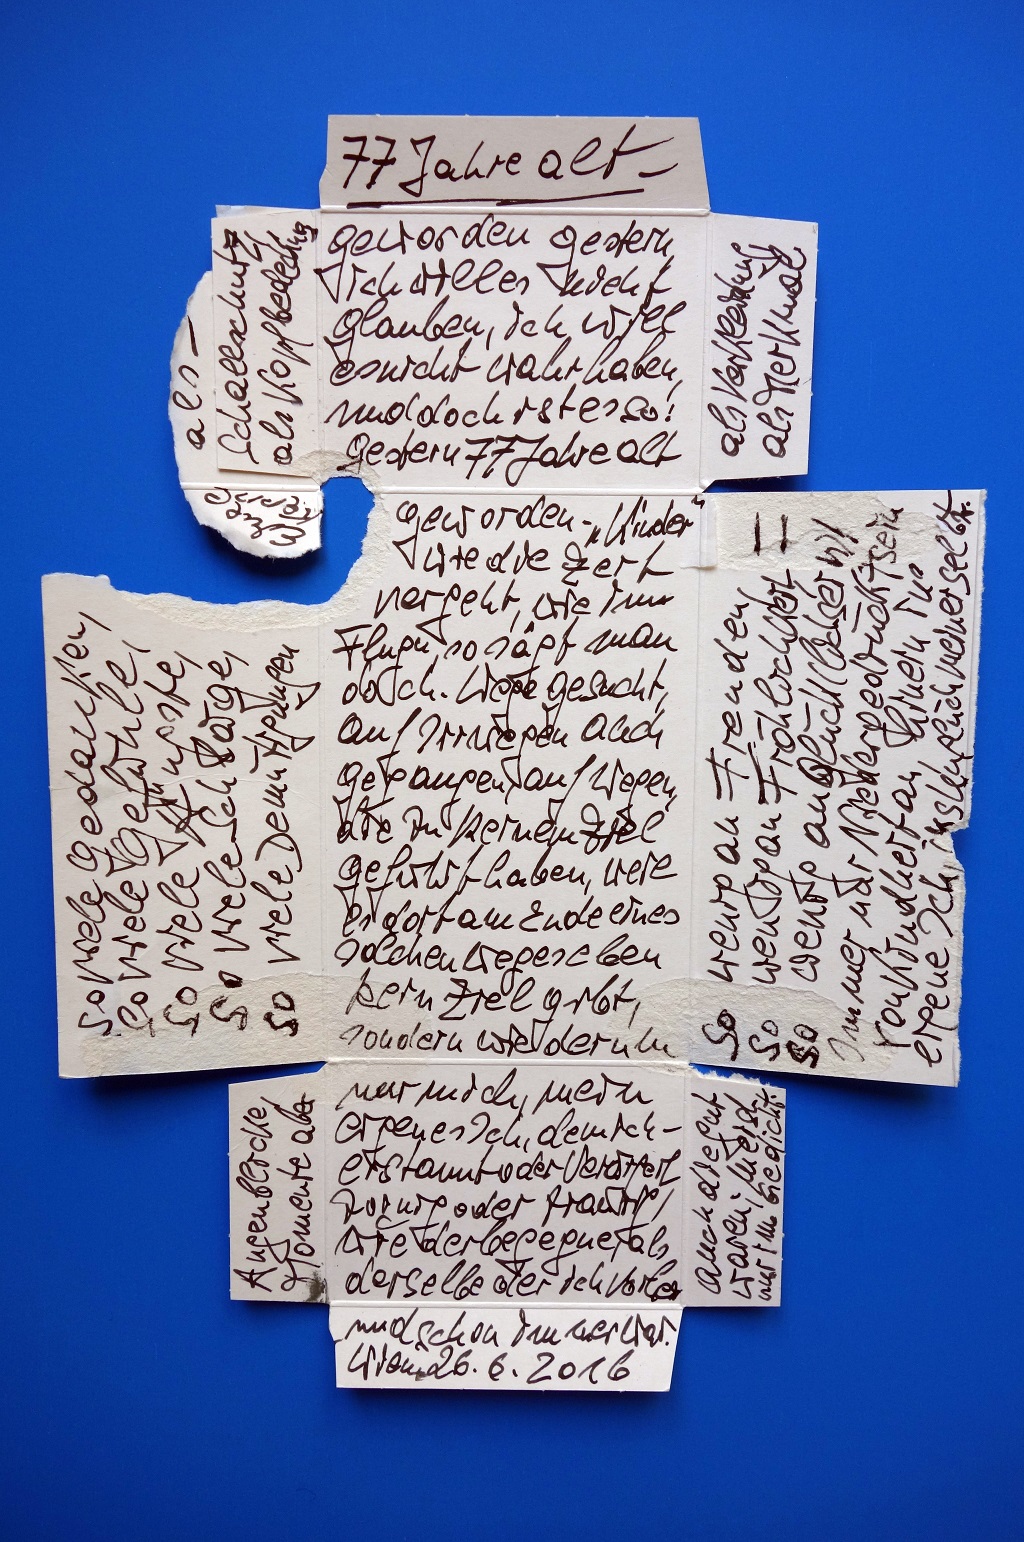 77 Jahre alt -
geworden gestern
ich will es nicht
glauben, ich will
es nicht wahrhaben,
und doch ist es so!
gestern 77 Jahre alt
geworden - „Kinder"
wie die Zeit
vergeht, wie im
Flug, so sagt man
doch. Wege gesucht,
auf Irrwegen auch
gegangen auf Wegen,
die zu keinem Ziel
geführt haben, weil
es dort am Ende eines
solchen Weges eben
kein Ziel gibt,
sondern wiederum
nur mich, mein
eigenes Ich, dem ich -
erstaunt oder verzweifelt
zornig oder traurig,
wiederbegegnet als
derselbe der ich vorher
und schon immer war.
Wien, 26.6.2016
als -
Schallschutz
als Kopfbedeckung
als Verkleidung
als Merkmal
So viele Gedanken,
so viele Gefühle,
so viele Ängste,
so viele Schläge,
so viele Demütigungen
So wenig an Freuden
So wenig an Fröhlichkeit
so wenig an Glücklichsein!!
Immer nur Niedergedrücktsein
von Kindheit an hinein ins
eigene Ich, ins Unglück meiner selbst.
Augenblicke,
Momente aber
auch die gut
waren, meist
nur im Gedicht.